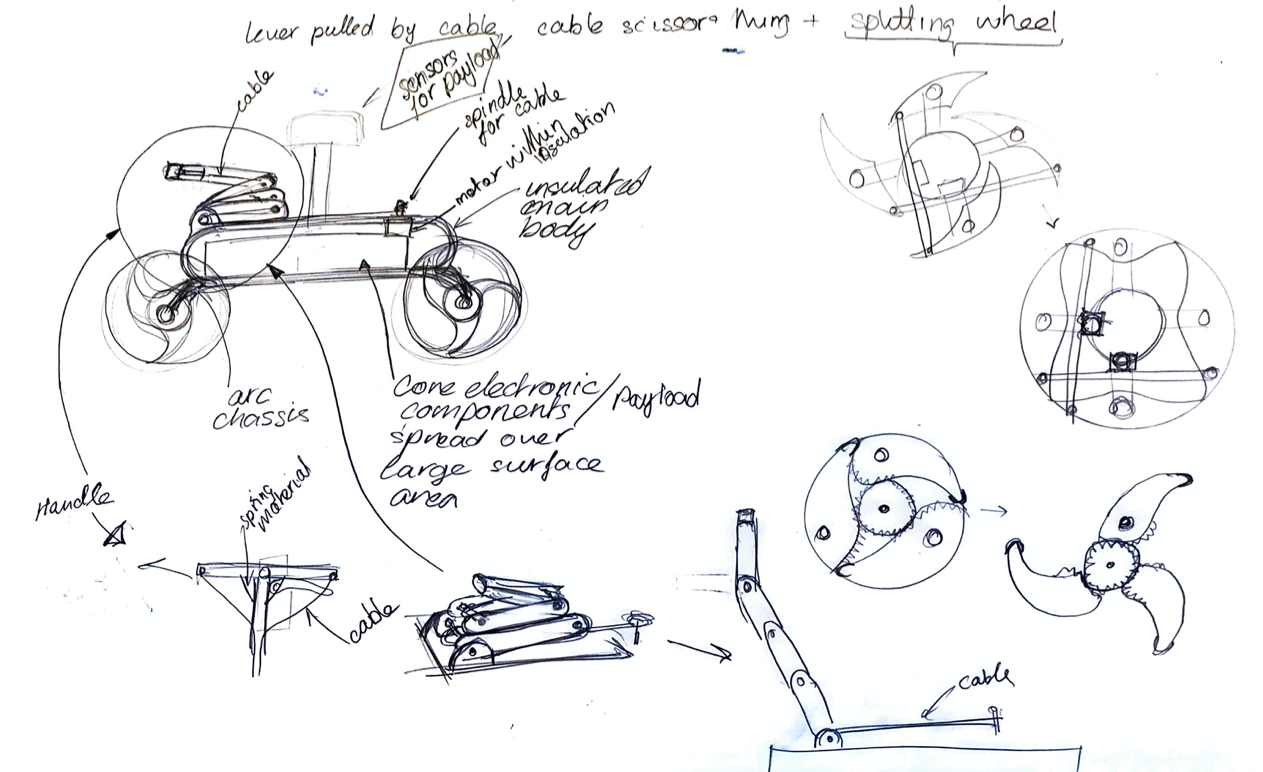 lever pulled by cable, cable scissor + splitting wheel
sensors
for payload
cable
spindle
for cable
motor within
insulation
insulated
main
body
arc
chassis
Core electronic / payload
components
spread over
large surface
area
Handle
spring
material
cable
cable